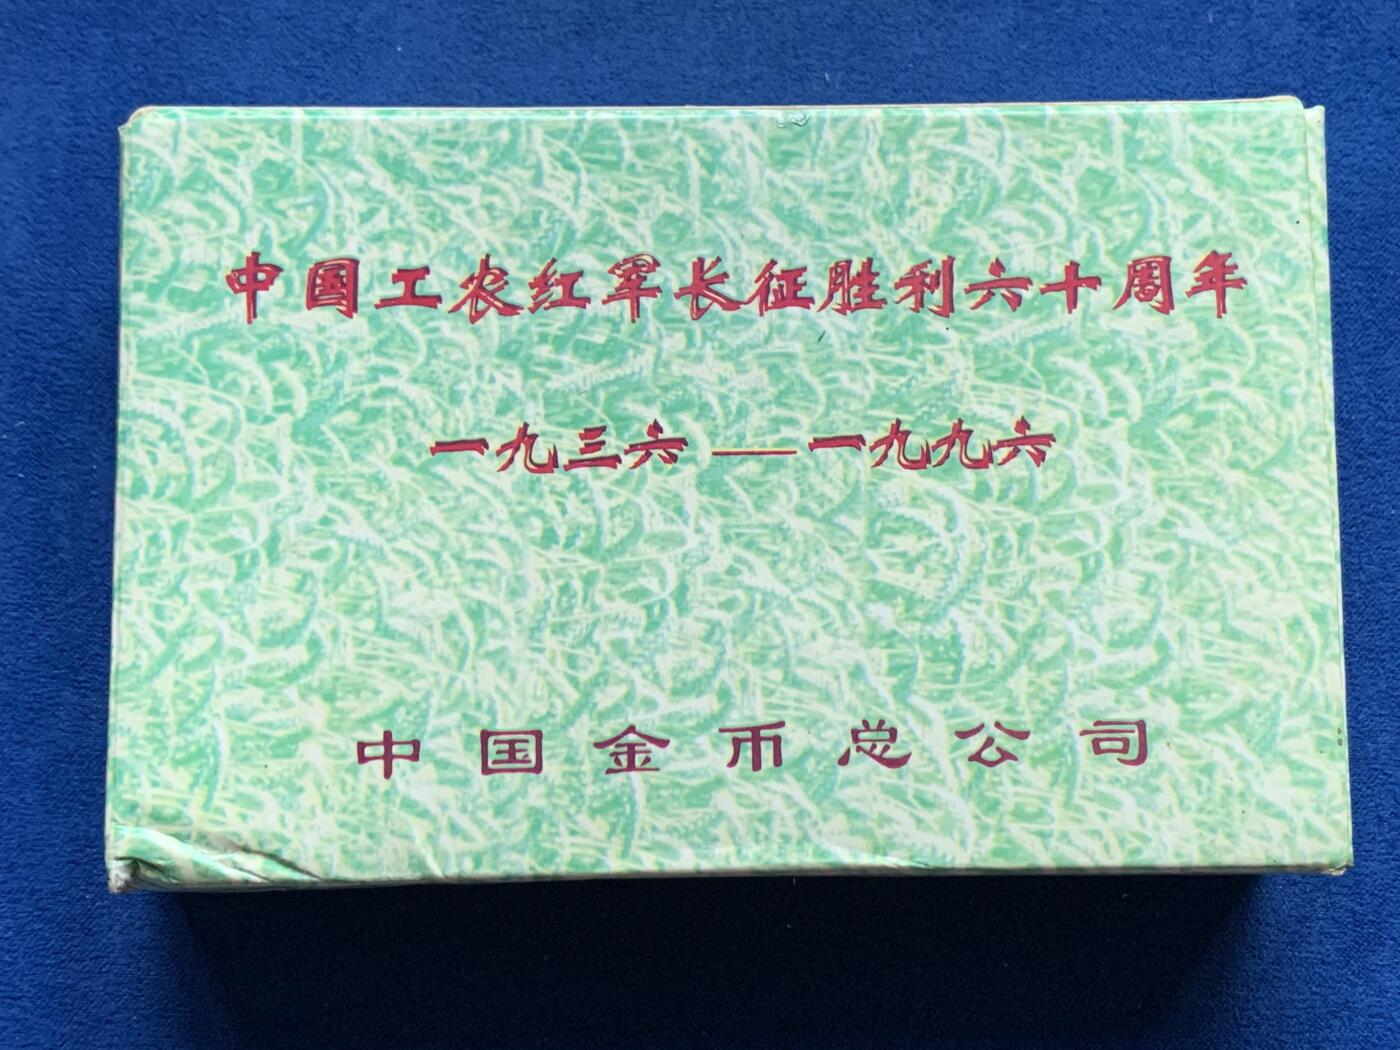 中国工农红军长征胜利六十周年
一九三六——一九九六
中国金币总公司